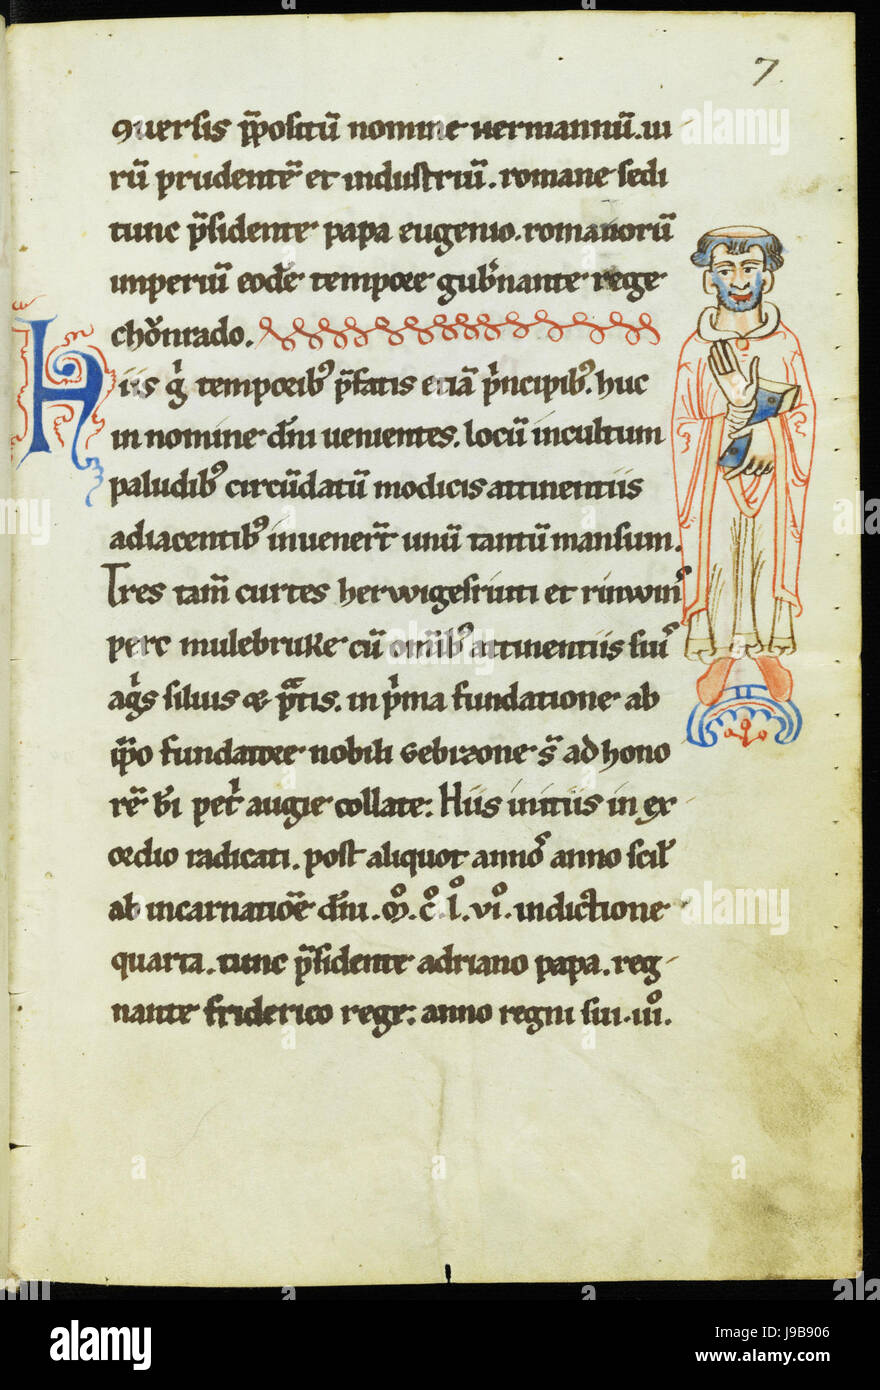 7
ꝯuersis p̄positū nomine uermannū. ui
rū prudentē et industriū. romane sedi
tunc p̄sidente papa eugenio. romanorū
imperiū eodē tempore gub̄nante rege
chōnrado.
Hiis g̍ temporib᾽ p̄fatis etiā p̍ncipib᾽. huc
in nomine dn̄i uenientes. locū incultum
paludib᾽ circūdatū modicis attinentiis
adiacentib᾽ inuener̄t unū tantū mansum.
Tres tam̄ curtes herwigesriuti et rinwin᾽
perc mulebruke cū om̄ib᾽ attinentiis sui᾽
ag̍s siluis & p̄tis. in p̍ma fundatione ab
ip̄o fundatore nobili Gebizone s̄ ad hono
rē b̄i pet̍ augie collate: Hiis initiis in ex
ordio radicati. post aliquot annos᾽ anno scil᾽
ab incarnatiōe dn̄i. ᴍ̊. c̊. l̊. vi̊. indictione
quarta. tunc p̄sidente adriano papa. reg
nante friderico rege: anno regni sui. iii̊.
alamy
Image ID: J9B906
www.alamy.com